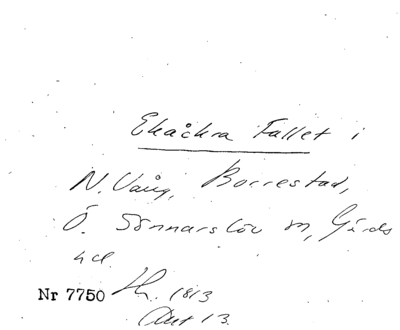 Ekåkra Fallet i
N. Vång, Borrestad,
Ö. Sönnarslöv sn, Gärds
hd.
Nr 7750 1813
Akt 13.